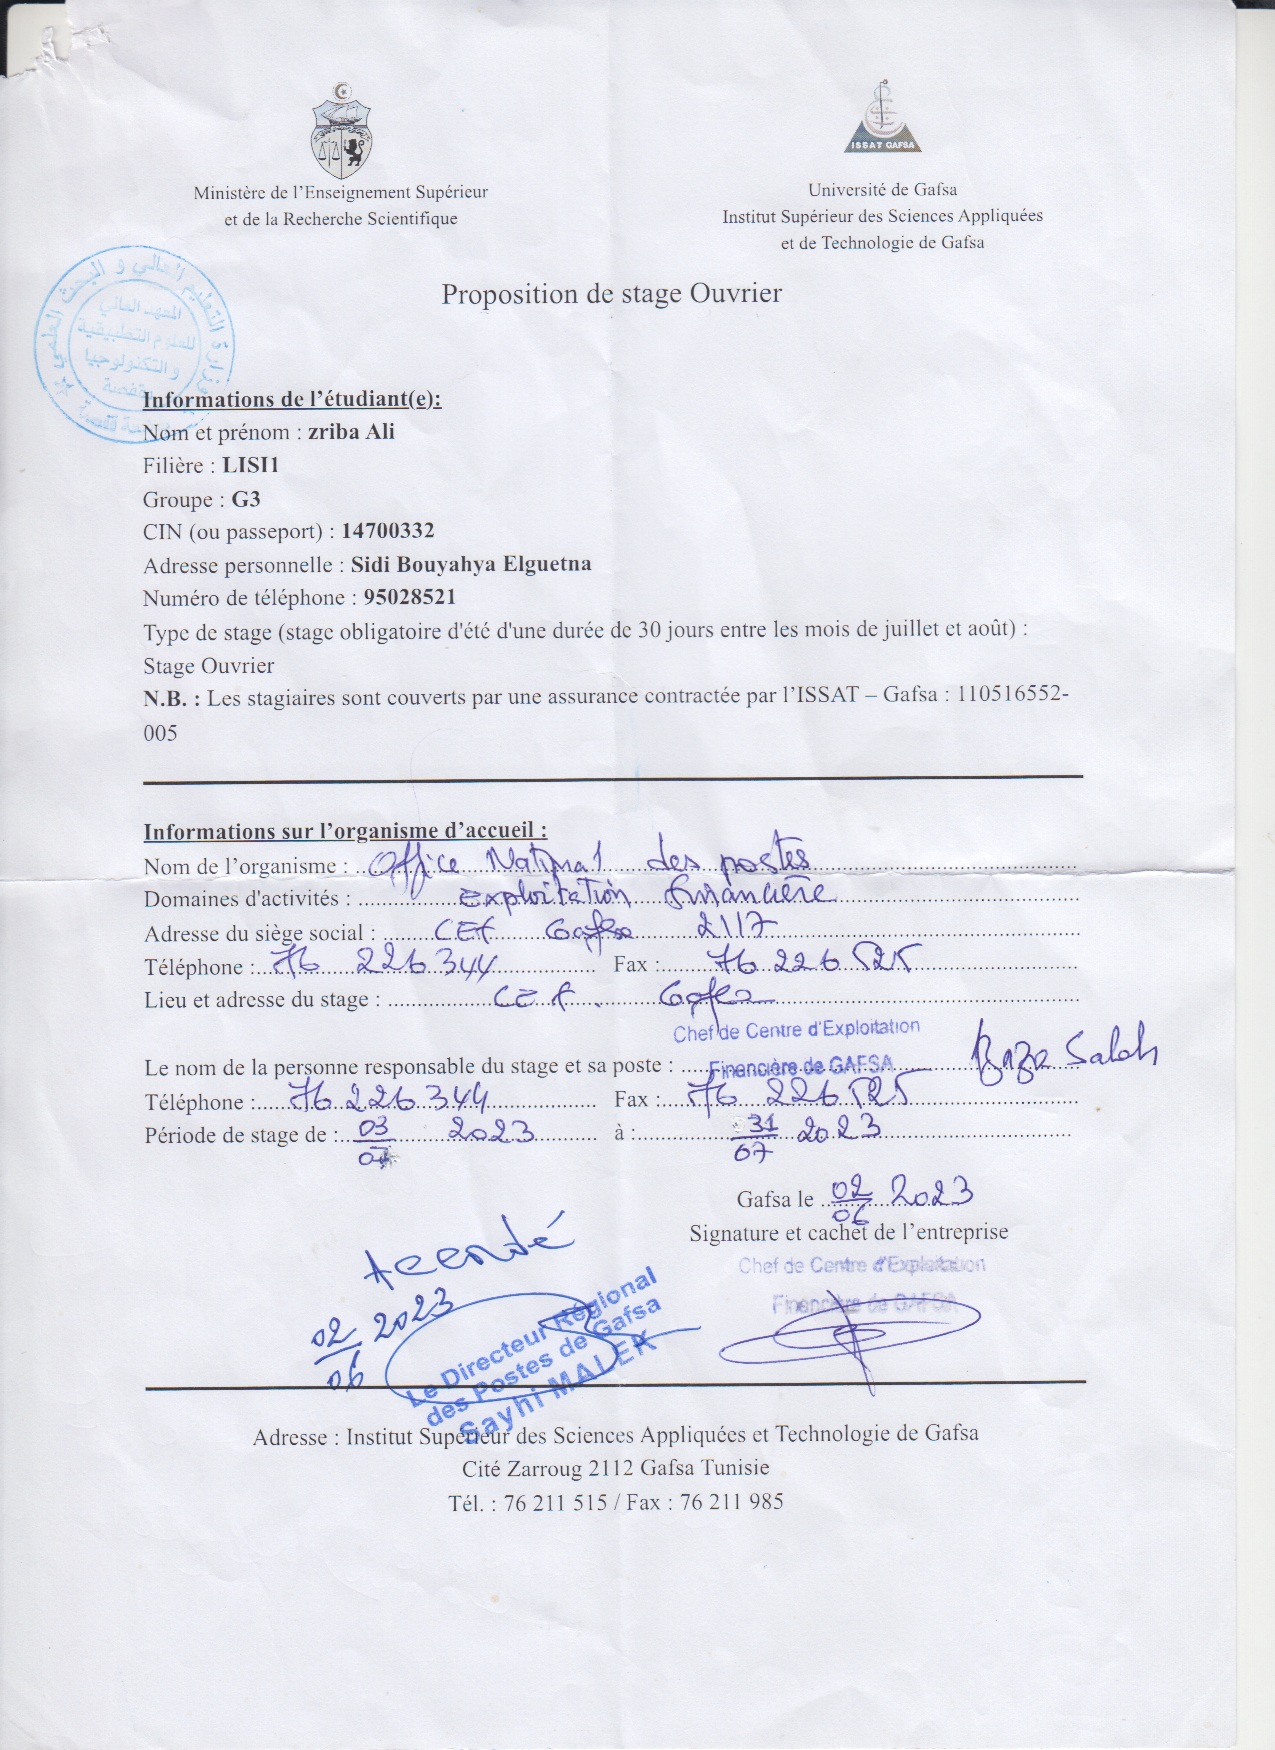 ISSAT GAFSA
Ministère de l'Enseignement Supérieur
et de la Recherche Scientifique
Université de Gafsa
Institut Supérieur des Sciences Appliquées
et de Technologie de Gafsa
Proposition de stage Ouvrier
وزارة التعليم العالي و البحث العلمي
المعهد العالي
للعلوم التطبيقية
و التكنولوجيا
بقفصة
Informations de l'étudiant(e):
Nom et prénom : zriba Ali
Filière : LISI1
Groupe : G3
CIN (ou passeport) : 14700332
Adresse personnelle : Sidi Bouyahya Elguetna
Numéro de téléphone : 95028521
Type de stage (stage obligatoire d'été d'une durée de 30 jours entre les mois de juillet et août) :
Stage Ouvrier
N.B. : Les stagiaires sont couverts par une assurance contractée par l'ISSAT – Gafsa : 110516552-
005
Informations sur l'organisme d'accueil :
Nom de l'organisme : Office National des postes
Domaines d'activités : exploitation financière
Adresse du siège social : CEF Gafsa 2117
Téléphone : 76 226 344 Fax : 76 226 525
Lieu et adresse du stage : CEF. Gafsa
Chef de Centre d'Exploitation
Le nom de la personne responsable du stage et sa poste : Financière de GAFSA Saleh
Téléphone : 76 226 344 Fax : 76 226 525
Période de stage de : 03/07 2023 à : 31/07 2023
Gafsa le 02/06 2023
Signature et cachet de l'entreprise
Chef de Centre d'Exploitation
Financière de GAFSA
Accordé
02/06 2023
Le Directeur Régional
des Postes de Gafsa
Sayhi MALEK
Adresse : Institut Supérieur des Sciences Appliquées et Technologie de Gafsa
Cité Zarroug 2112 Gafsa Tunisie
Tél. : 76 211 515 / Fax : 76 211 985